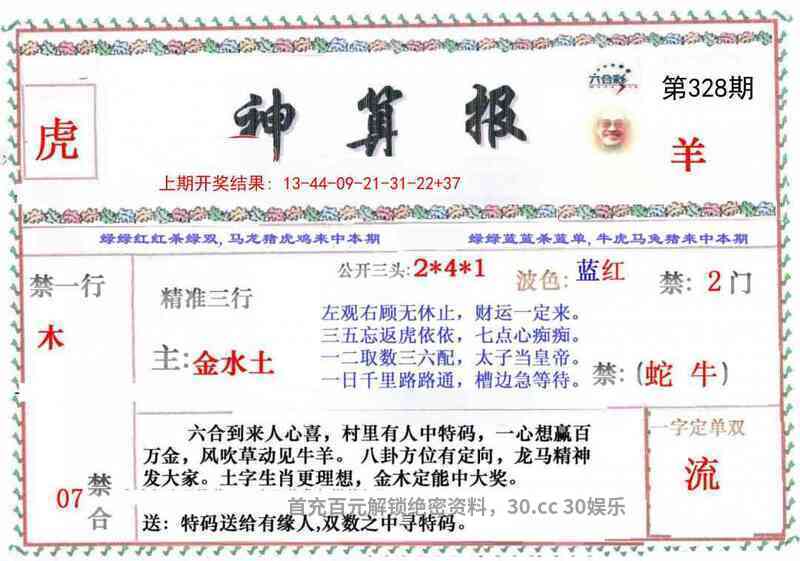 神算报
六合彩
第328期
虎
羊
上期开奖结果：13-44-09-21-31-22+37
绿绿红红杀绿双,马龙猪虎鸡来中本期
绿绿蓝蓝杀蓝单,牛虎马兔猪来中本期
禁一行
木
精准三行
主:金水土
公开三头:2*4*1
波色:蓝红
禁: 2门
左观右顾无休止，财运一定来。
三五忘返虎依依，七点心痴痴。
一二取数三六配，太子当皇帝。
一日千里路路通，槽边急等待。
禁:(蛇 牛)
07禁合
六合到来人心喜，村里有人中特码，一心想赢百
万金，风吹草动见牛羊。 八卦方位有定向，龙马精神
发大家。土字生肖更理想，金木定能中大奖。
首充百元解锁绝密资料，30.cc 30娱乐
送：特码送给有缘人,双数之中寻特码。
一字定单双
流